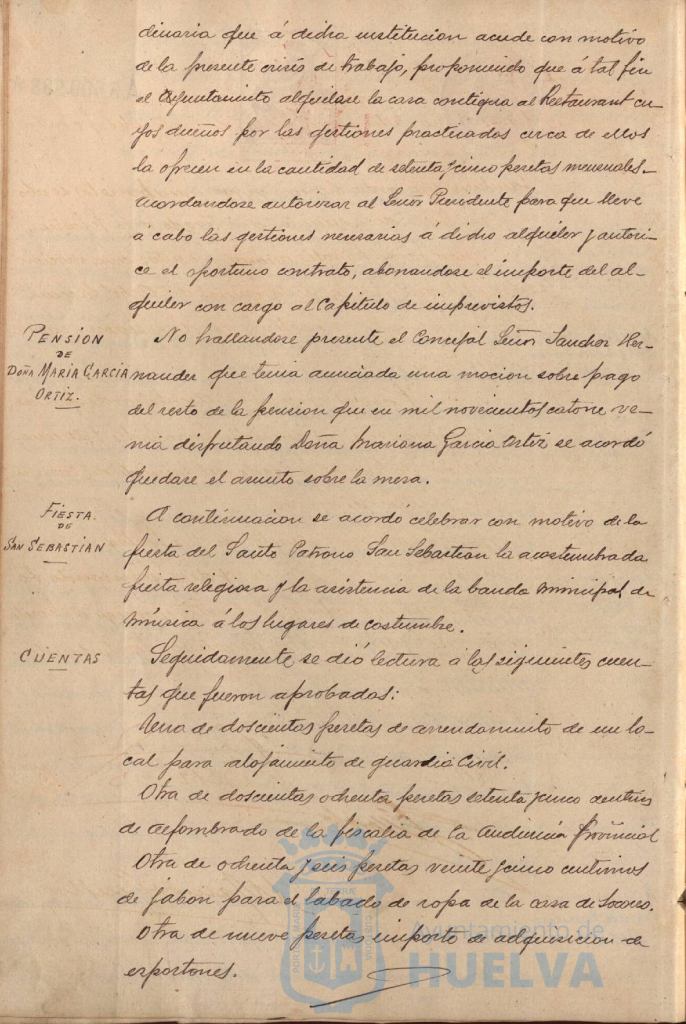 dinaria que á dicha institucion acude con motivo
de la presente crisis de trabajo, proponiendo que á tal fin
el Ayuntamiento alquilase la casa contigua al Restaurant cu-
yos dueños por las gestiones practicadas cerca de ellos
la ofrecen en la cantidad de setenta y cinco pesetas mensuales.-
acordandose autorizar al Señor Presidente para que lleve
á cabo las gestiones necesarias á dicho alquiler y autori-
ce el oportuno contrato, abonandose el importe del al-
quiler con cargo al Capitulo de imprevistos.
PENSION
DE
DOÑA MARIA GARCIA
ORTIZ.
No hallandose presente el Concejal Señor Sanchez Her-
nandez que tenia anunciada una mocion sobre pago
del resto de la pension que en mil novecientos catorce ve-
nia disfrutando Doña Mariana Garcia Ortiz se acordó
quedase el asunto sobre la mesa.
FIESTA
DE
SAN SEBASTIAN
A continuacion se acordó celebrar con motivo de la
fiesta del Santo Patrono San Sebastian la acostumbrada
fiesta religiosa y la asistencia de la banda municipal de
música á los lugares de costumbre.
CUENTAS
Seguidamente se dió lectura á las siguientes cuen-
tas que fueron aprobadas:
Una de doscientas pesetas de arrendamiento de un lo-
cal para alojamiento de guardia Civil.
Otra de doscientas ochenta pesetas setenta y cinco centimos
de alfombrado de la fiscalia de la Audiencia Provincial
Otra de ochenta y seis pesetas veinte y cinco centimos
de jabon para el labado de ropa de la casa de Socorro.
Otra de nueve pesetas importe de adquisicion de
esportones.
Ayuntamiento de
HUELVA